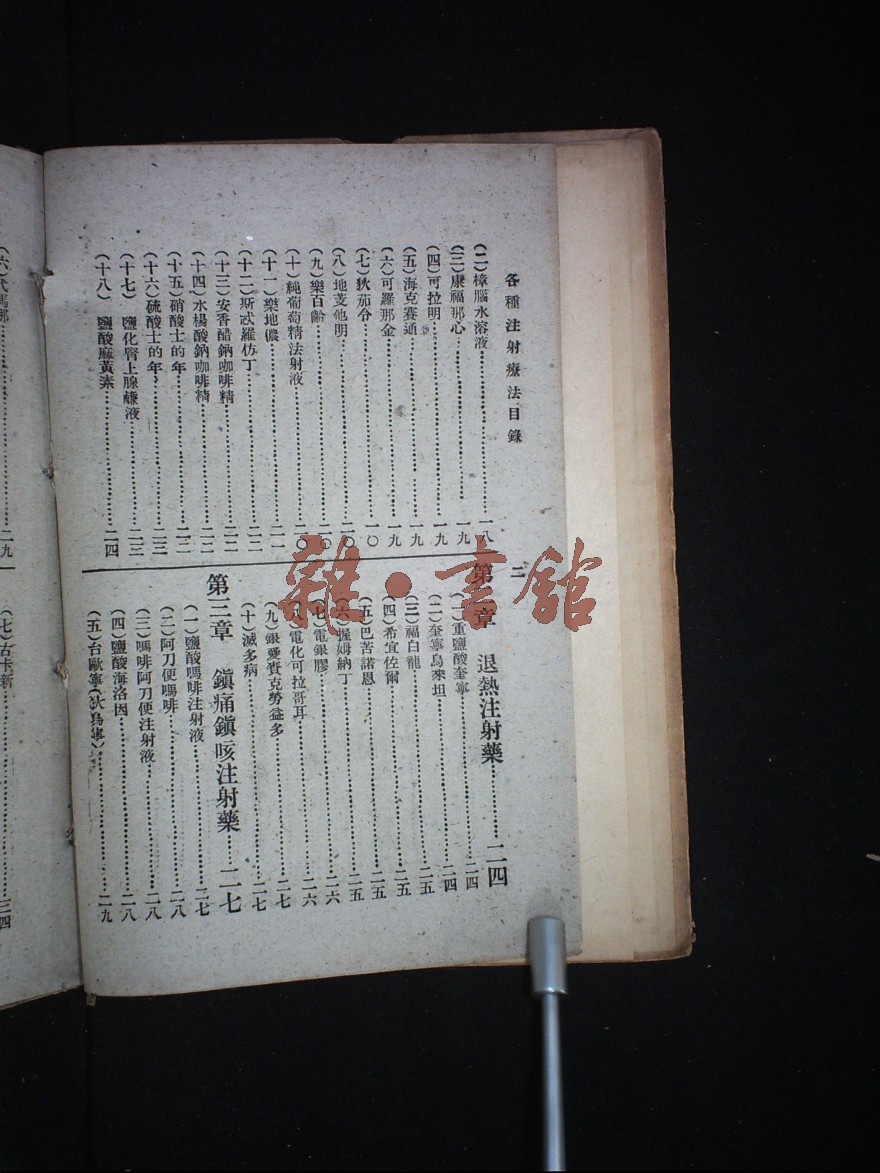 各種注射療法目錄
二
(二)樟腦水溶液……一八
(三)康福那心……一九
(四)可拉明……一九
(五)海克賽通……一九
(六)可羅那金……一九
(七)狄茄令……一〇
(八)地芰他明……二〇
(九)樂百齡……二〇
(十)純葡萄精法射液……二〇
(十一)樂地儂……二一
(十二)斯忒羅仿丁……二二
(十三)安香醋鈉咖啡精……二二
(十四)水楊酸鈉咖啡精……二二
(十五)硝酸士的年……二二
(十六)硫酸士的年……二三
(十七)鹽化腎上腺素液……二三
(十八)鹽酸麻黃素……二四
第二章 退熱注射藥……二四
(一)重鹽酸奎寧……二四
(二)奎寧烏來坦……二四
(三)福白龍……二五
(四)希宜佐爾……二五
(五)巴苦諾恩……二五
(六)握姆納丁……二五
(七)電銀膠……二六
(八)電化可拉哥耳……二六
(九)銀愛賚克勞益多……二七
(十)滅多病……二七
第三章 鎮痛鎮咳注射藥……二七
(一)鹽酸嗎啡注射液……二七
(二)阿刀便嗎啡……二八
(三)嗎啡阿刀便注射液……二八
(四)鹽酸海洛因……二八
(五)台歐寧(狄烏寧)……二九
二九
(七)古卡新……三四
雜·書館